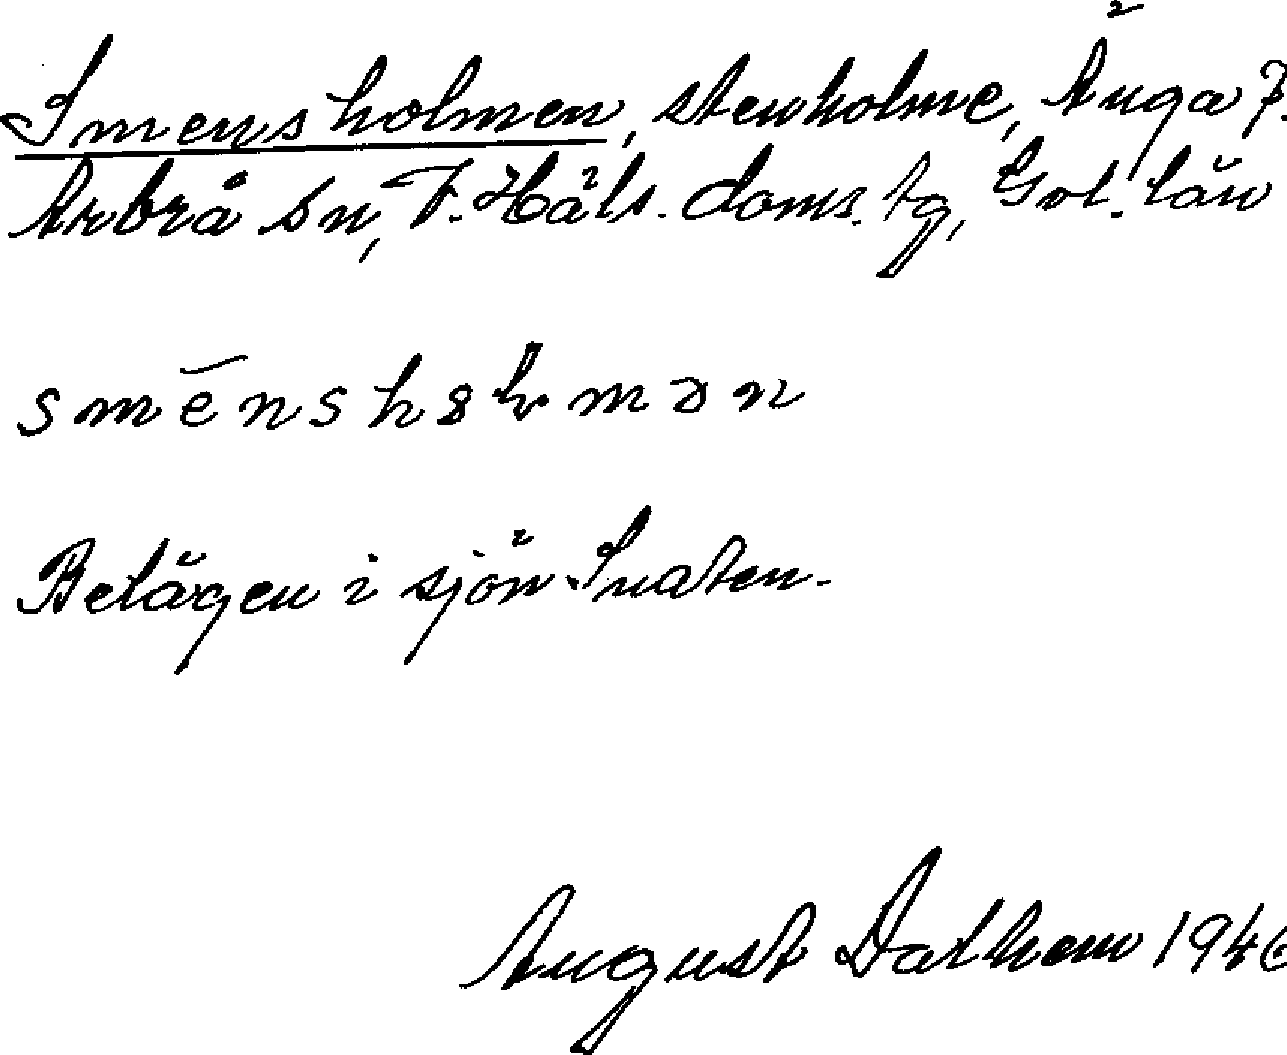 Smensholmen, stenholme, Änga 7.
Arbrå sn, V. Häls. doms. tg, Gvl. län
smēnshomən
Belägen i sjön Snaten.
August Dalhem 1946